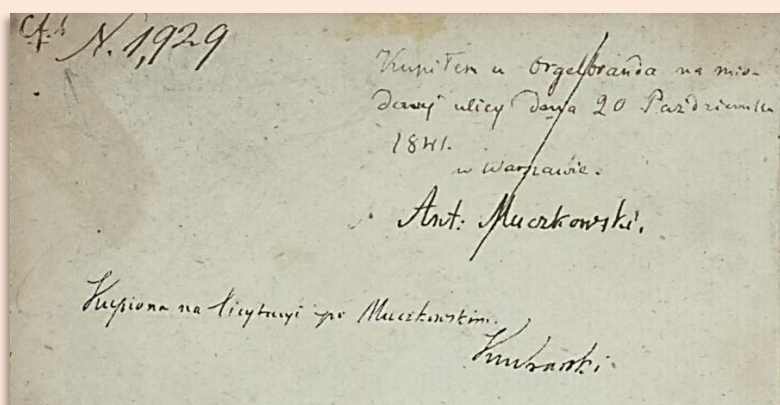 N. 1,929
Kupiłem u Orgelbranda na mio-
dowej ulicy dnia 20 Października
1841.
w Warszawie.
Ant: Muczkowski.
Kupiona na licytacyi po Muczkowskim.